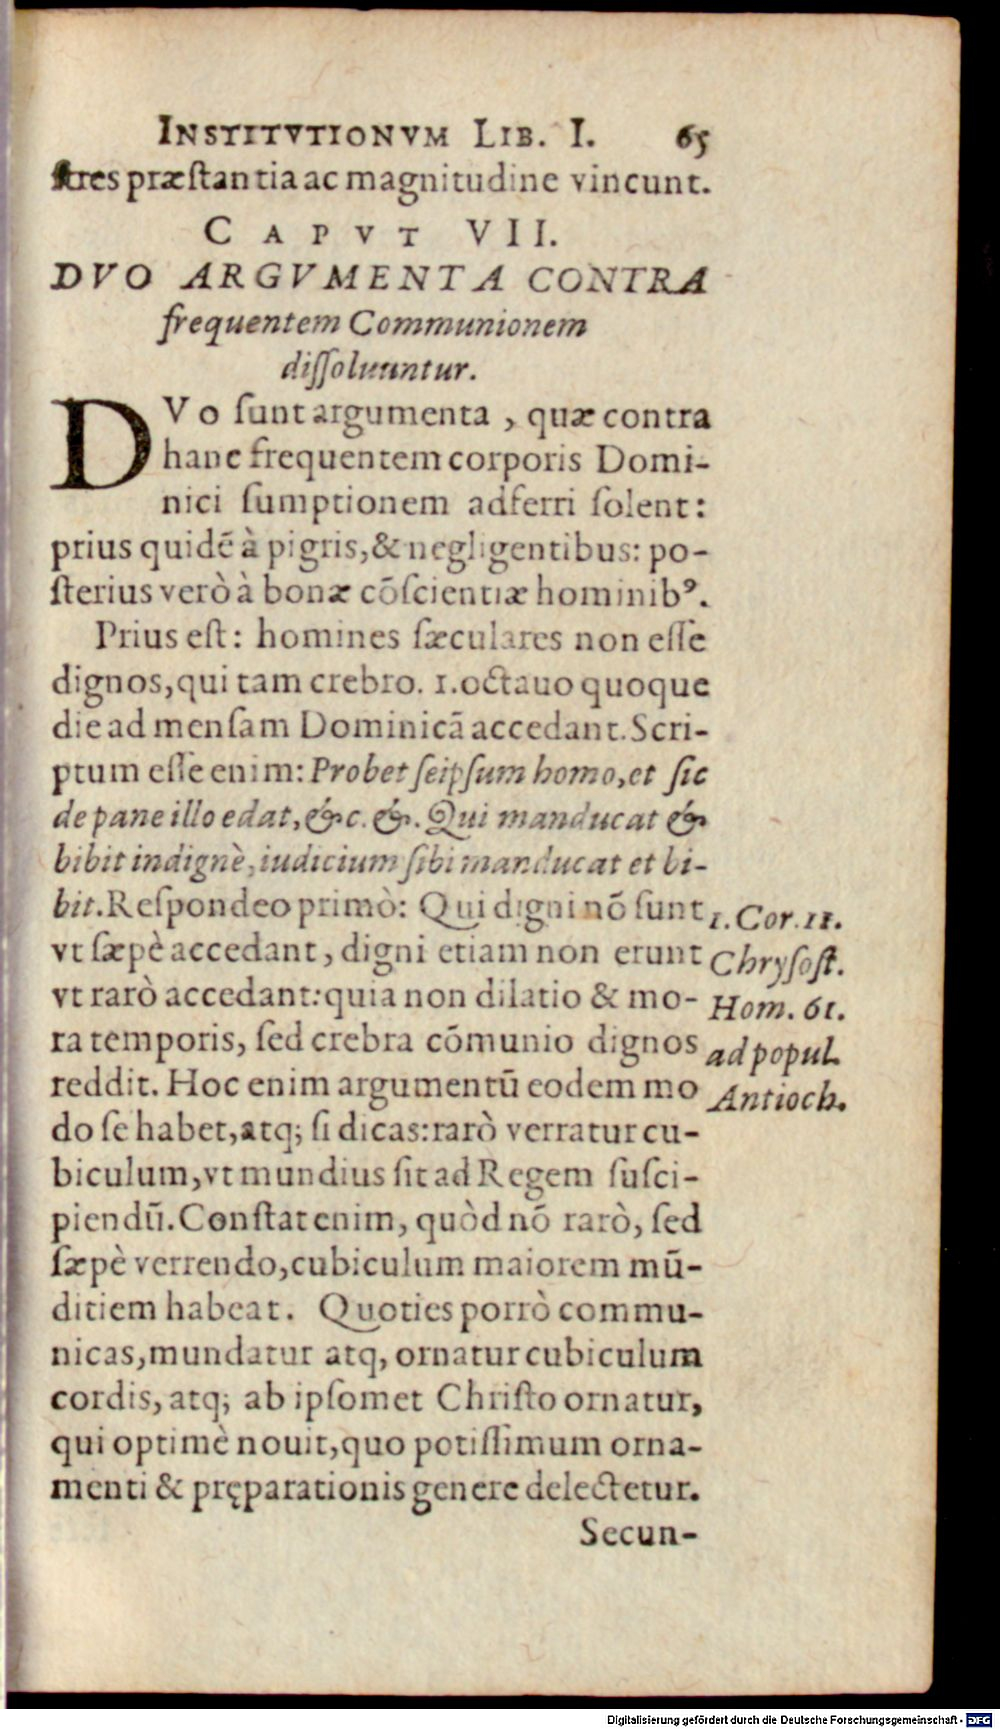 INSTITVTIONVM LIB. I. 65
ſtres præſtantia ac magnitudine vincunt.
CAPVT VII.
DVO ARGVMENTA CONTRA
frequentem Communionem
diſſoluuntur.
DVo ſunt argumenta, quæ contra
hanc frequentem corporis Domi-
nici ſumptionem adferri ſolent:
prius quidẽ à pigris, & negligentibus: po-
ſterius verò à bonæ cõſcientiæ hominibꝰ.
Prius eſt: homines ſæculares non eſſe
dignos, qui tam crebro. 1. octauo quoque
die ad menſam Dominicã accedant. Scri-
ptum eſſe enim: Probet ſeipſum homo, et ſic
de pane illo edat, &c. &. Qui manducat &
bibit indignè, iudicium ſibi manducat et bi-
bit. Reſpondeo primò: Qui digni nõ ſunt
vt ſæpè accedant, digni etiam non erunt
vt rarò accedant: quia non dilatio & mo-
ra temporis, ſed crebra cõmunio dignos
reddit. Hoc enim argumentũ eodem mo
do ſe habet, atq; ſi dicas: rarò verratur cu-
biculum, vt mundius ſit ad Regem ſuſci-
piendũ. Conſtat enim, quòd nõ rarò, ſed
ſæpè verrendo, cubiculum maiorem mũ-
ditiem habeat. Quoties porrò commu-
nicas, mundatur atq, ornatur cubiculum
cordis, atq; ab ipſomet Chriſto ornatur,
qui optimè nouit, quo potiſſimum orna-
menti & pręparationis genere delectetur.
Secun-
1. Cor. 11.
Chryſoſt.
Hom. 61.
ad popul.
Antioch.
Digitalisierung gefördert durch die Deutsche Forschungsgemeinschaft - DFG